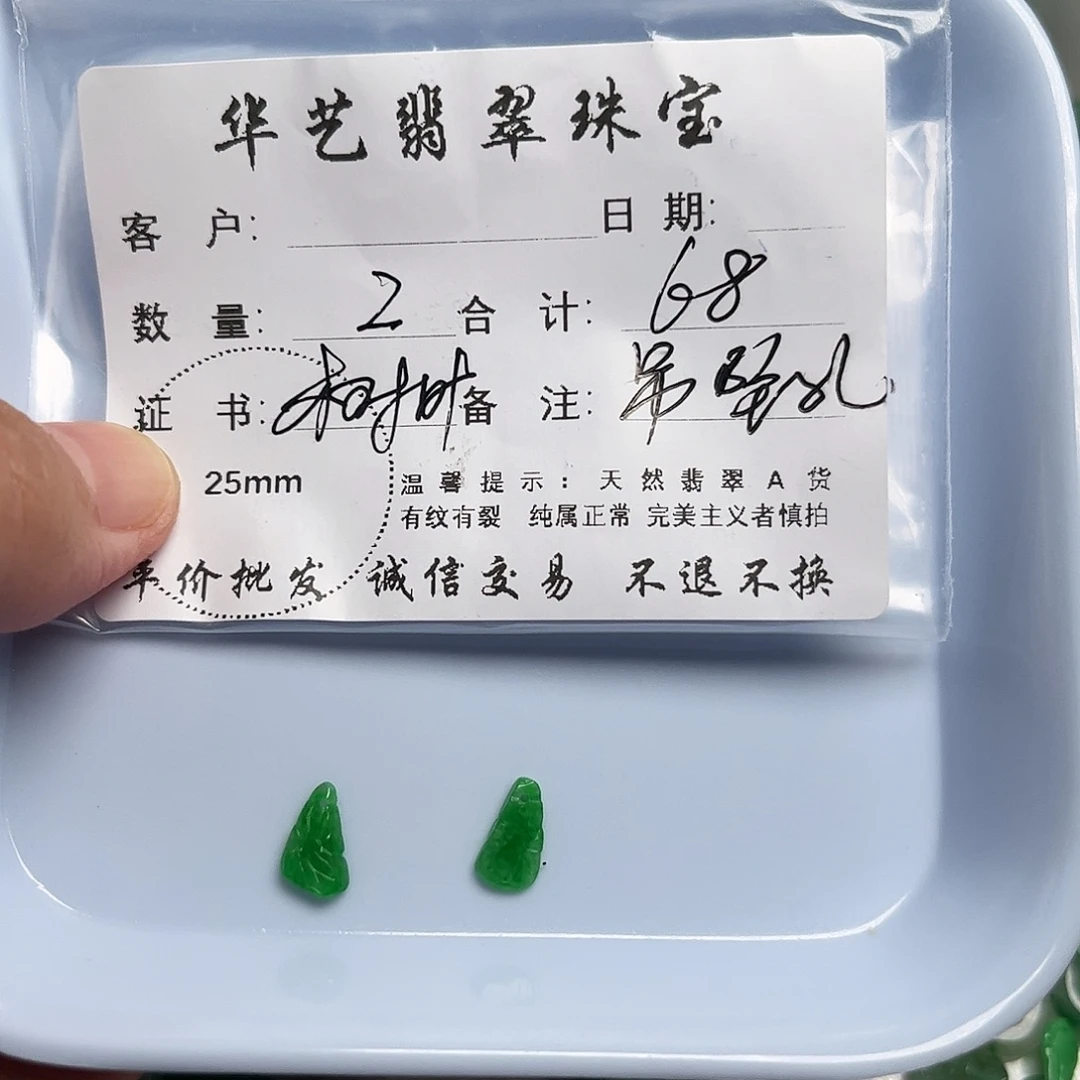 华艺翡翠珠宝
客户: 日期:
数量: 2 合计: 68
证书: 备注: 吊坠
25mm
温馨提示: 天然翡翠A货
有纹有裂 纯属正常 完美主义者慎拍
单价批发 诚信交易 不退不换